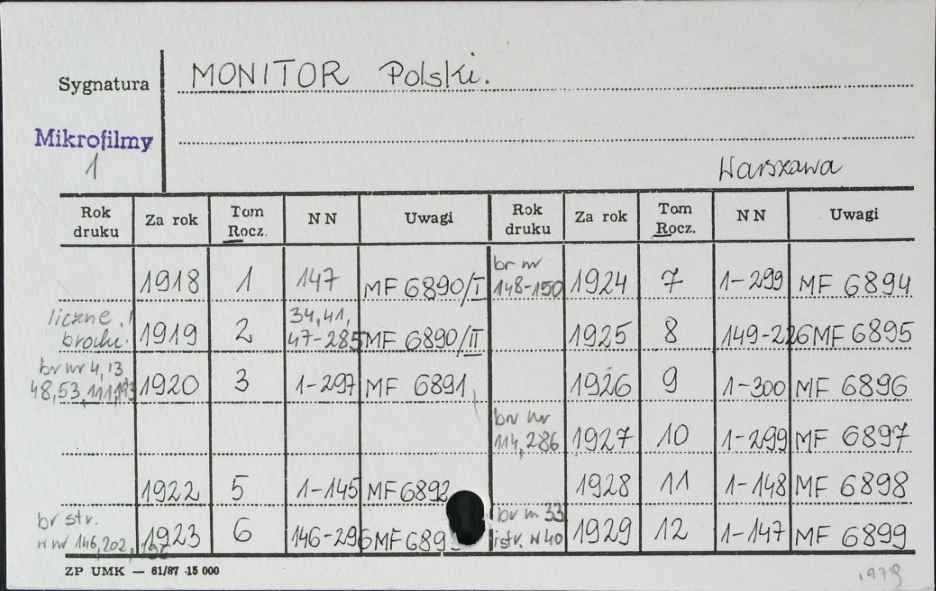 Sygnatura MONITOR Polski.
Mikrofilmy
1
Warszawa
Rok druku Za rok Tom Rocz. NN Uwagi Rok druku Za rok Tom Rocz. NN Uwagi
1918 1 147 MF 6890/I br nr 148-150 1924 7 1-299 MF 6894
liczne 1919 2 34,41, 47-285 MF 6890/II 1925 8 149-226 MF 6895
br nr 4,13 48,53,111,193 1920 3 1-297 MF 6891 1926 9 1-300 MF 6896
br nr 114,286 1927 10 1-299 MF 6897
1922 5 1-145 MF 6892 1928 11 1-148 MF 6898
br str. w nr 146,202, 1923 6 146-296 MF 689 br nr 33 istr. w 40 1929 12 1-147 MF 6899
ZP UMK — 61/87 15 000
1979